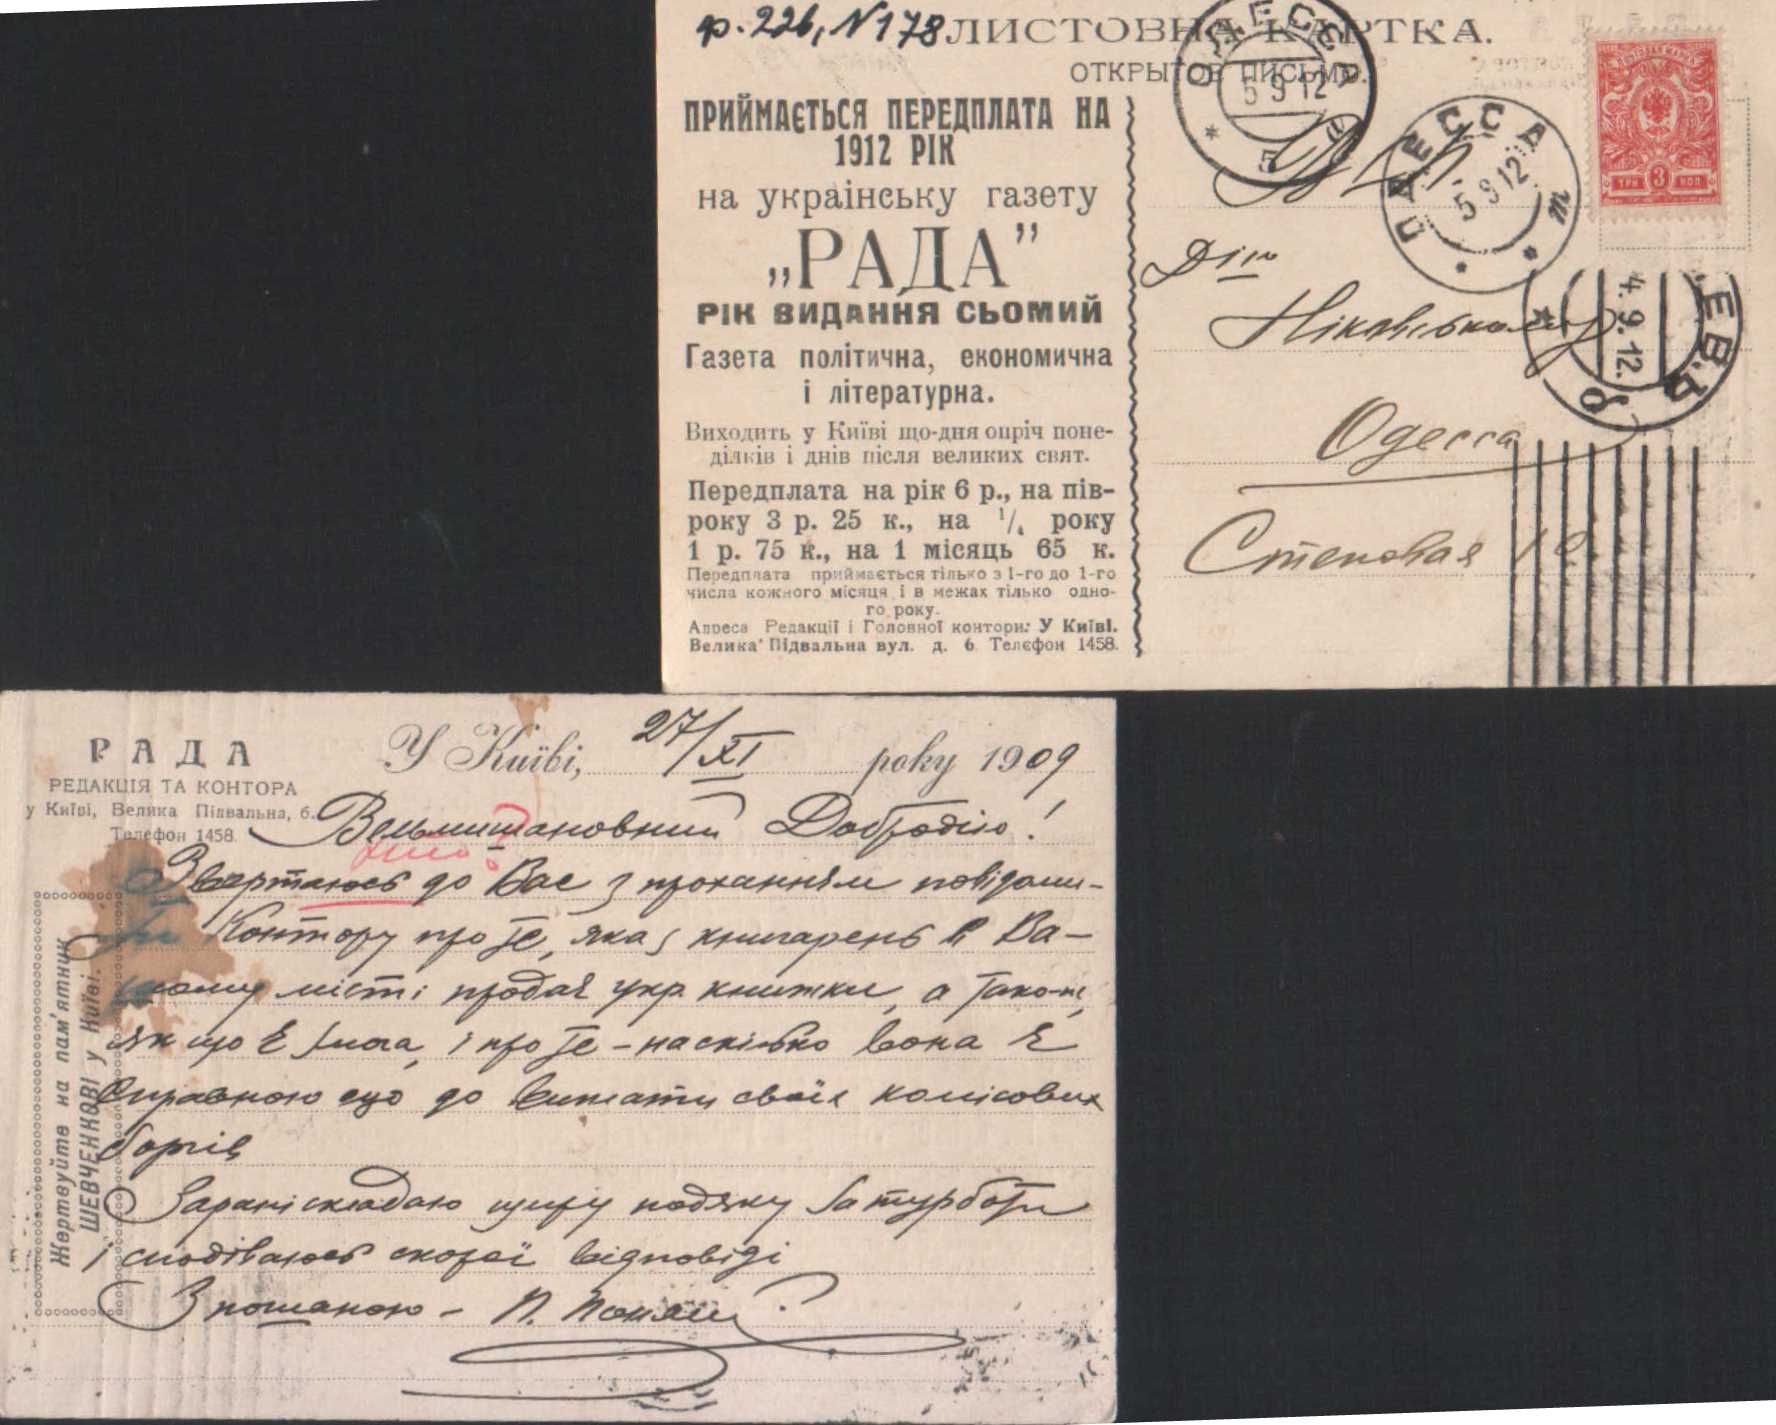 ф. 226, N 178
ЛИСТОВНА КАРТКА.
ОТКРЫТОЕ ПИСЬМО.
ПРИЙМАЄТЬСЯ ПЕРЕДПЛАТА НА
1912 РІК
на українську газету
„РАДА”
РІК ВИДАННЯ СЬОМИЙ
Газета політична, економична
і літературна.
Виходить у Київі що-дня опріч поне-
ділків і днів після великих свят.
Передплата на рік 6 р., на пів-
року 3 р. 25 к., на 1/4 року
1 р. 75 к., на 1 місяць 65 к.
Передплата приймається тілько з 1-го до 1-го
числа кожного місяця і в межах тілько одно-
го року.
Адреса Редакції і Головної контори: У Київі.
Велика Підвальна вул. д. 6 Телєфон 1458.
ОДЕССА
5 9 12
5
ОДЕССА
5 9 12
ТРИ 3 КОП
ЕВЪ
4. 9. 12.
Ніковському
Одесса
Степовая 10
РАДА
РЕДАКЦІЯ ТА КОНТОРА
у Київі, Велика Підвальна, 6.
Телєфон 1458.
У Київі, 27/XI року 1909
Вельмишановний Добродію!
Звертаюсь до Вас з проханням повідоми-
Контору про те, яка з книгарень в Ва-
шому місті продає укр. книжки, а також,
як що є змога, і про те - наскілько вона є
справною що до виплати своїх комісових
боргів
Зарані складаю щиру подяку за турботи
і сподіваюсь скорої відповіді
З пошаною -
Жертвуйте на пам'ятник
ШЕВЧЕНКОВІ у Київі.